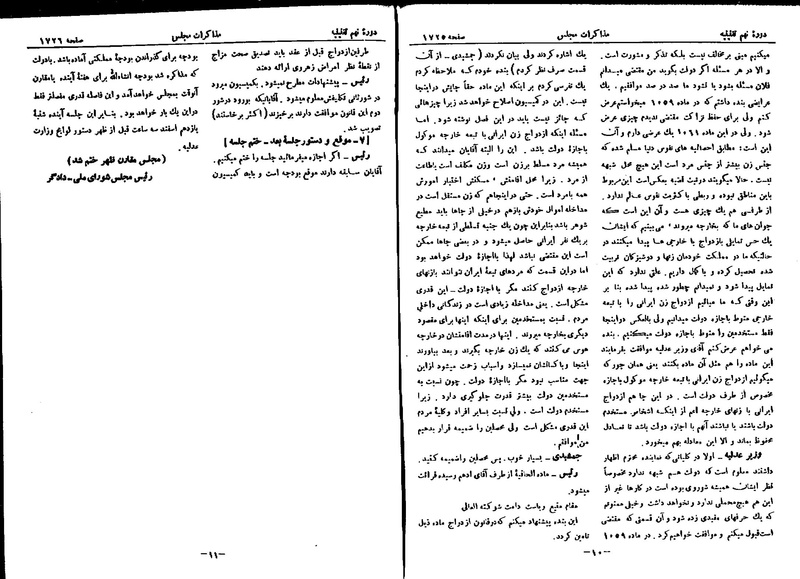 دورهٔ نهم تقنینیه
مذاکرات مجلس
صفحه ۱۷۲۵
میکنیم مبنی بر مخالف نیست بلکه تذکر و مشورت است.
و الا در هر مسئله اگر دولت بگوید من مقتضی میدانم
فلان مسئله بشود یا نشود ما صد در صد موافقیم. یك
عرایضی بنده داشتم که در ماده ۱۰۵۹ میخواستم عرض
کنم ولی برای حفظ نزاکت مقتضی ندیدم چیزی عرض
شود. ولی در این ماده ۱۰۶۱ یك عرضی دارم و آن
این است: مطابق احصائیه های نفوس دنیا مسلم شده که
جنس زن بیشتر از جنس مرد است این هیچ محل شبهه
نیست. حالا میگویند در تبت قضیه بعکس است این مربوط
باین مناطق نبوده و ربطی با کثریت نفوس عالم ندارد.
از طرفی هم یك چیزی هست و آن این است که
جوان های ما که بخارجه میروند، می بینیم که ایشان
یك حس تمایلی بازدواج با خارجی ها پیدا میکنند در
حالتیکه ما در مملکت خودمان زنها و دوشیزگان تربیت
شده تحصیل کرده و با کمال داریم. علتی ندارد که این
تمایل پیدا شود و نمیدانم چطور شده پیدا شده بنا بر
این وقتی که ما میائیم ازدواج زن ایرانی را با تبعه
خارجی منوط باجازه دولت میدانیم ولی بالعکس در اینجا
فقط مستخدمین را منوط باجازه دولت میکنیم. بنده
می خواهم عرض کنم آقای وزیر عدلیه موافقت بفرمایند
این ماده را هم مثل آن ماده بکنند یعنی همان جور که
میگوئیم ازدواج زن ایرانی با تبعه خارجه موکول باجازه
مخصوص از طرف دولت است. در این جا هم ازدواج
ایرانی با زنهای خارجه اعم از اینکه اشخاص مستخدم
دولت باشند یا نباشند آنهم با اجازه دولت باشد تا تعادل
محفوظ بماند و الا این معادله بهم میخورد.
وزیر عدلیه - اولا در کلیاتی که نماینده محترم اظهار
داشتند معلوم است که دولت هم شبهه ندارد مخصوصاً
نظر ایشان همیشه شوروی بوده است در کارها غیر از
این هم هیچ محملی ندارد و نخواهد داشت و خیلی ممنونم
که یك حرفهای مفیدی زده شود و آن قسمتی که مقتضی
است قبول میکنم و موافقت خواهیم کرد. در ماده ۱۰۵۹
یك اشاره کردند ولی بیان نکردند (جمشیدی - از آن
قسمت صرف نظر کردم) بنده خودم که ملاحظه کردم
یك نفرسی کردم بر اینکه این ماده حقاً جایش در اینجا
نیست. این در کمیسیون اصلاح خواهد شد زیرا چیزهائی
که جائز نیست باید در این فصل نوشته شود. اما
مسئله اینکه ازدواج زن ایرانی با تبعه خارجه موکول
باجازه دولت باشد. این را البته آقایان میدانند که
همیشه مرد مسلط بر زن است و زن مکلف است باطاعت
از مرد. زیرا محل اقامتش، مسکنش اختیار امورش
همه با مرد است. حتی در اینجاهم که زن مستقل است در
مداخله اموال خودش بازهم در خیلی از جاها باید مطیع
شوهر باشد بنابراین چون یك جنبه تسلطی از تبعه خارجه
بر یك نفر ایرانی حاصل میشود و در بعضی جاها ممکن
است این مقتضی نباشد لهذا با اجازه دولت خواهد بود
اما در این قسمت که مردهای تبعهٔ ایران نتوانند بازنهای
خارجه ازدواج کنند مگر با اجازهٔ دولت - این قدری
مشکل است. یعنی مداخله زیادی است در زندگانی داخلی
مردم. نسبت بمستخدمین برای اینکه اینها برای مقصود
دیگری بخارجه میروند. اینها در مدت اقامتشان در خارجه
هوس می کنند که یك زن خارجه بگیرند و بعد بیاورند
اینجا و با کسانشان نمیسازد و اسباب زحمت میشود از این
جهت مناسب نبود مگر با اجازهٔ دولت. چون نسبت به
مستخدمین دولت بیشتر قدرت جلوگیری دارد. زیرا
مستخدم دولت است. ولی نسبت بسایر افراد و کلیهٔ مردم
این قدری مشکل است ولی محصلین را ضمیمه قرار بدهیم
من موافقم.
جمشیدی - بسیار خوب. پس محصلین را ضمیمه کنید.
رئیس - ماده الحاقیهٔ از طرف آقای ادهم رسیده قرائت
میشود.
مقام منیع ریاست دامت شوکته العالی
این بنده پیشنهاد میکنم که در قانون ازدواج ماده ذیل
تامین گردد.
-۱۰-
دورهٔ نهم تقنینیه
مذاکرات مجلس
صفحه ۱۷۲۶
طرفین ازدواج قبل از عقد باید تصدیق صحت مزاج
از نقطهٔ نظر امراض زهروی ارائه دهند
رئیس - پیشنهادات مطرح نمیشود. بکمیسیون میرود
در شور ثانی تکلیفش معلوم میشود. آقایانیکه بورود در شور
دوم این قانون موافقت دارند برخیزند (اکثر برخاستند)
تصویب شد.
[۷- موقع و دستور جلسهٔ بعد - ختم جلسه]
رئیس - اگر اجازه میفرمائید جلسه را ختم میکنیم.
آقایان مسابقه دارند موقع بودجه است و باید کمیسیون
بودجه برای گذراندن بودجهٔ مملکتی آماده باشد. با دولت
که مذاکره شد بودجه انشاءالله برای هفتهٔ آینده یا مقارن
آنوقت بمجلس خواهد آمد و این فاصله قدری مفصلتر فقط
در این یك بار خواهد بود. بنابر این جلسه آینده شنبهٔ
یازدهم اسفند سه ساعت قبل از ظهر دستور لوایح وزارت
عدلیه.
(مجلس مقارن ظهر ختم شد)
رئیس مجلس شورای ملی - دادگر
-۱۱-